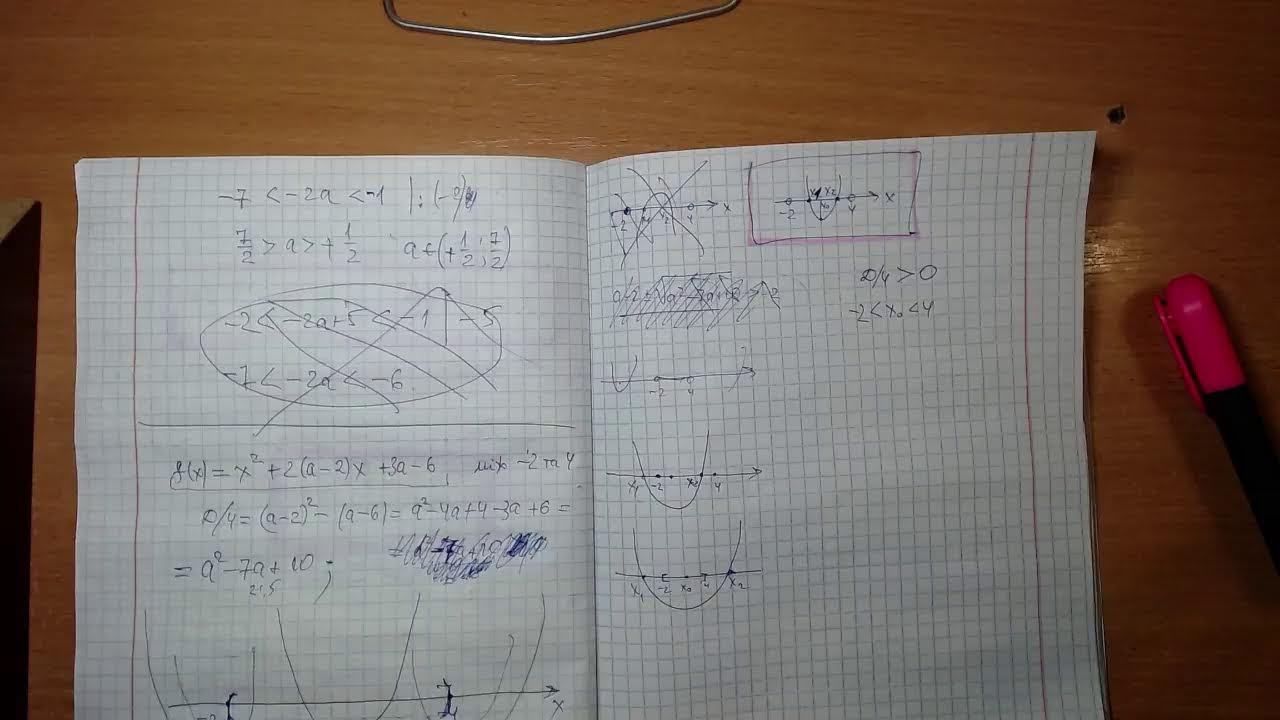 -7 < -2a < -1 | : (-2)
7/2 > a > + 1/2   a ∈ (+ 1/2; 7/2)
-2 < -2a+5 < -1 | -5
-7 < -2a < -6
f(x) = x² + 2(a-2)x + 3a - 6, між -2 та 4
D/4 = (a-2)² - (a-6) = a² - 4a + 4 - 3a + 6 =
= a² - 7a + 10 ;
2; 5
-2 4 x
-2 x₂ 4 x
-2 x₁ x₀ x₂ 4 x
D/4 > 0
-2 < x₀ < 4
-2 4
x₁ -2 x₂ 4
x₁ -2 x₀ 4 x₂